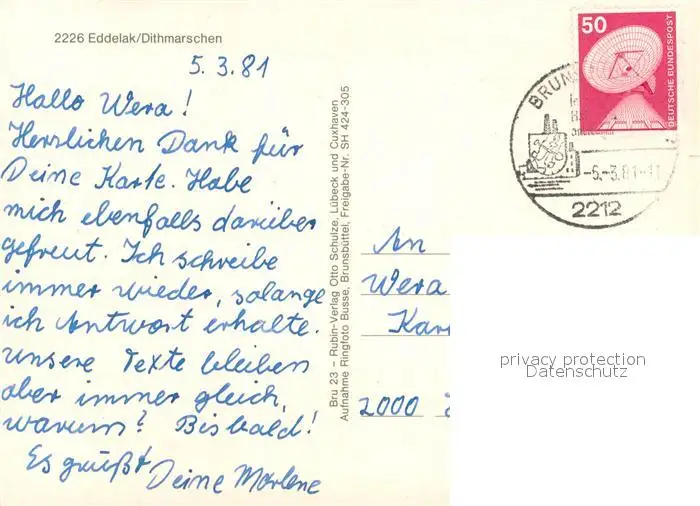 2226 Eddelak/Dithmarschen
5.3.81
Hallo Wera!
Herzlichen Dank für
Deine Karte. Habe
mich ebenfalls darüber
gefreut. Ich schreibe
immer wieder, solange
ich Antwort erhalte.
Unsere Texte bleiben
aber immer gleich,
warum? Bis bald!
Es grüßt Deine Marlene
Bru 23 – Rubin-Verlag Otto Schulze, Lübeck und Cuxhaven
Aufnahme Ringfoto Busse, Brunsbüttel, Freigabe-Nr. SH 424-305
50
DEUTSCHE BUNDESPOST
BRUNS
-5.-3.81-11
2212
An
Wera
Kar
2000
privacy protection
Datenschutz